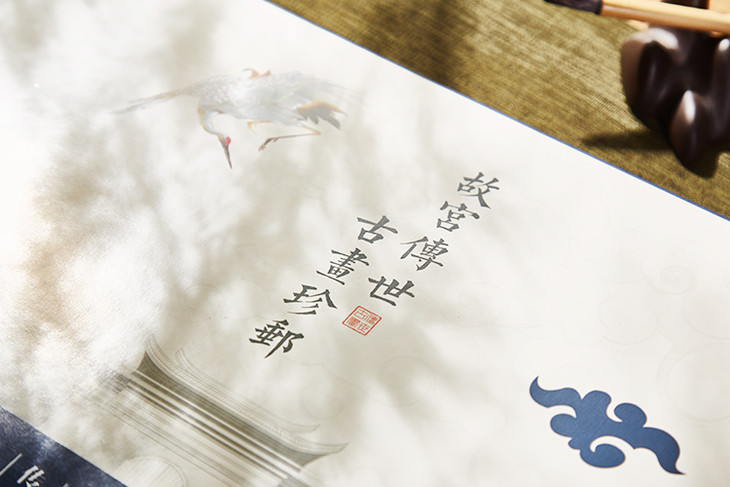 故宮傳世
古畫珍郵